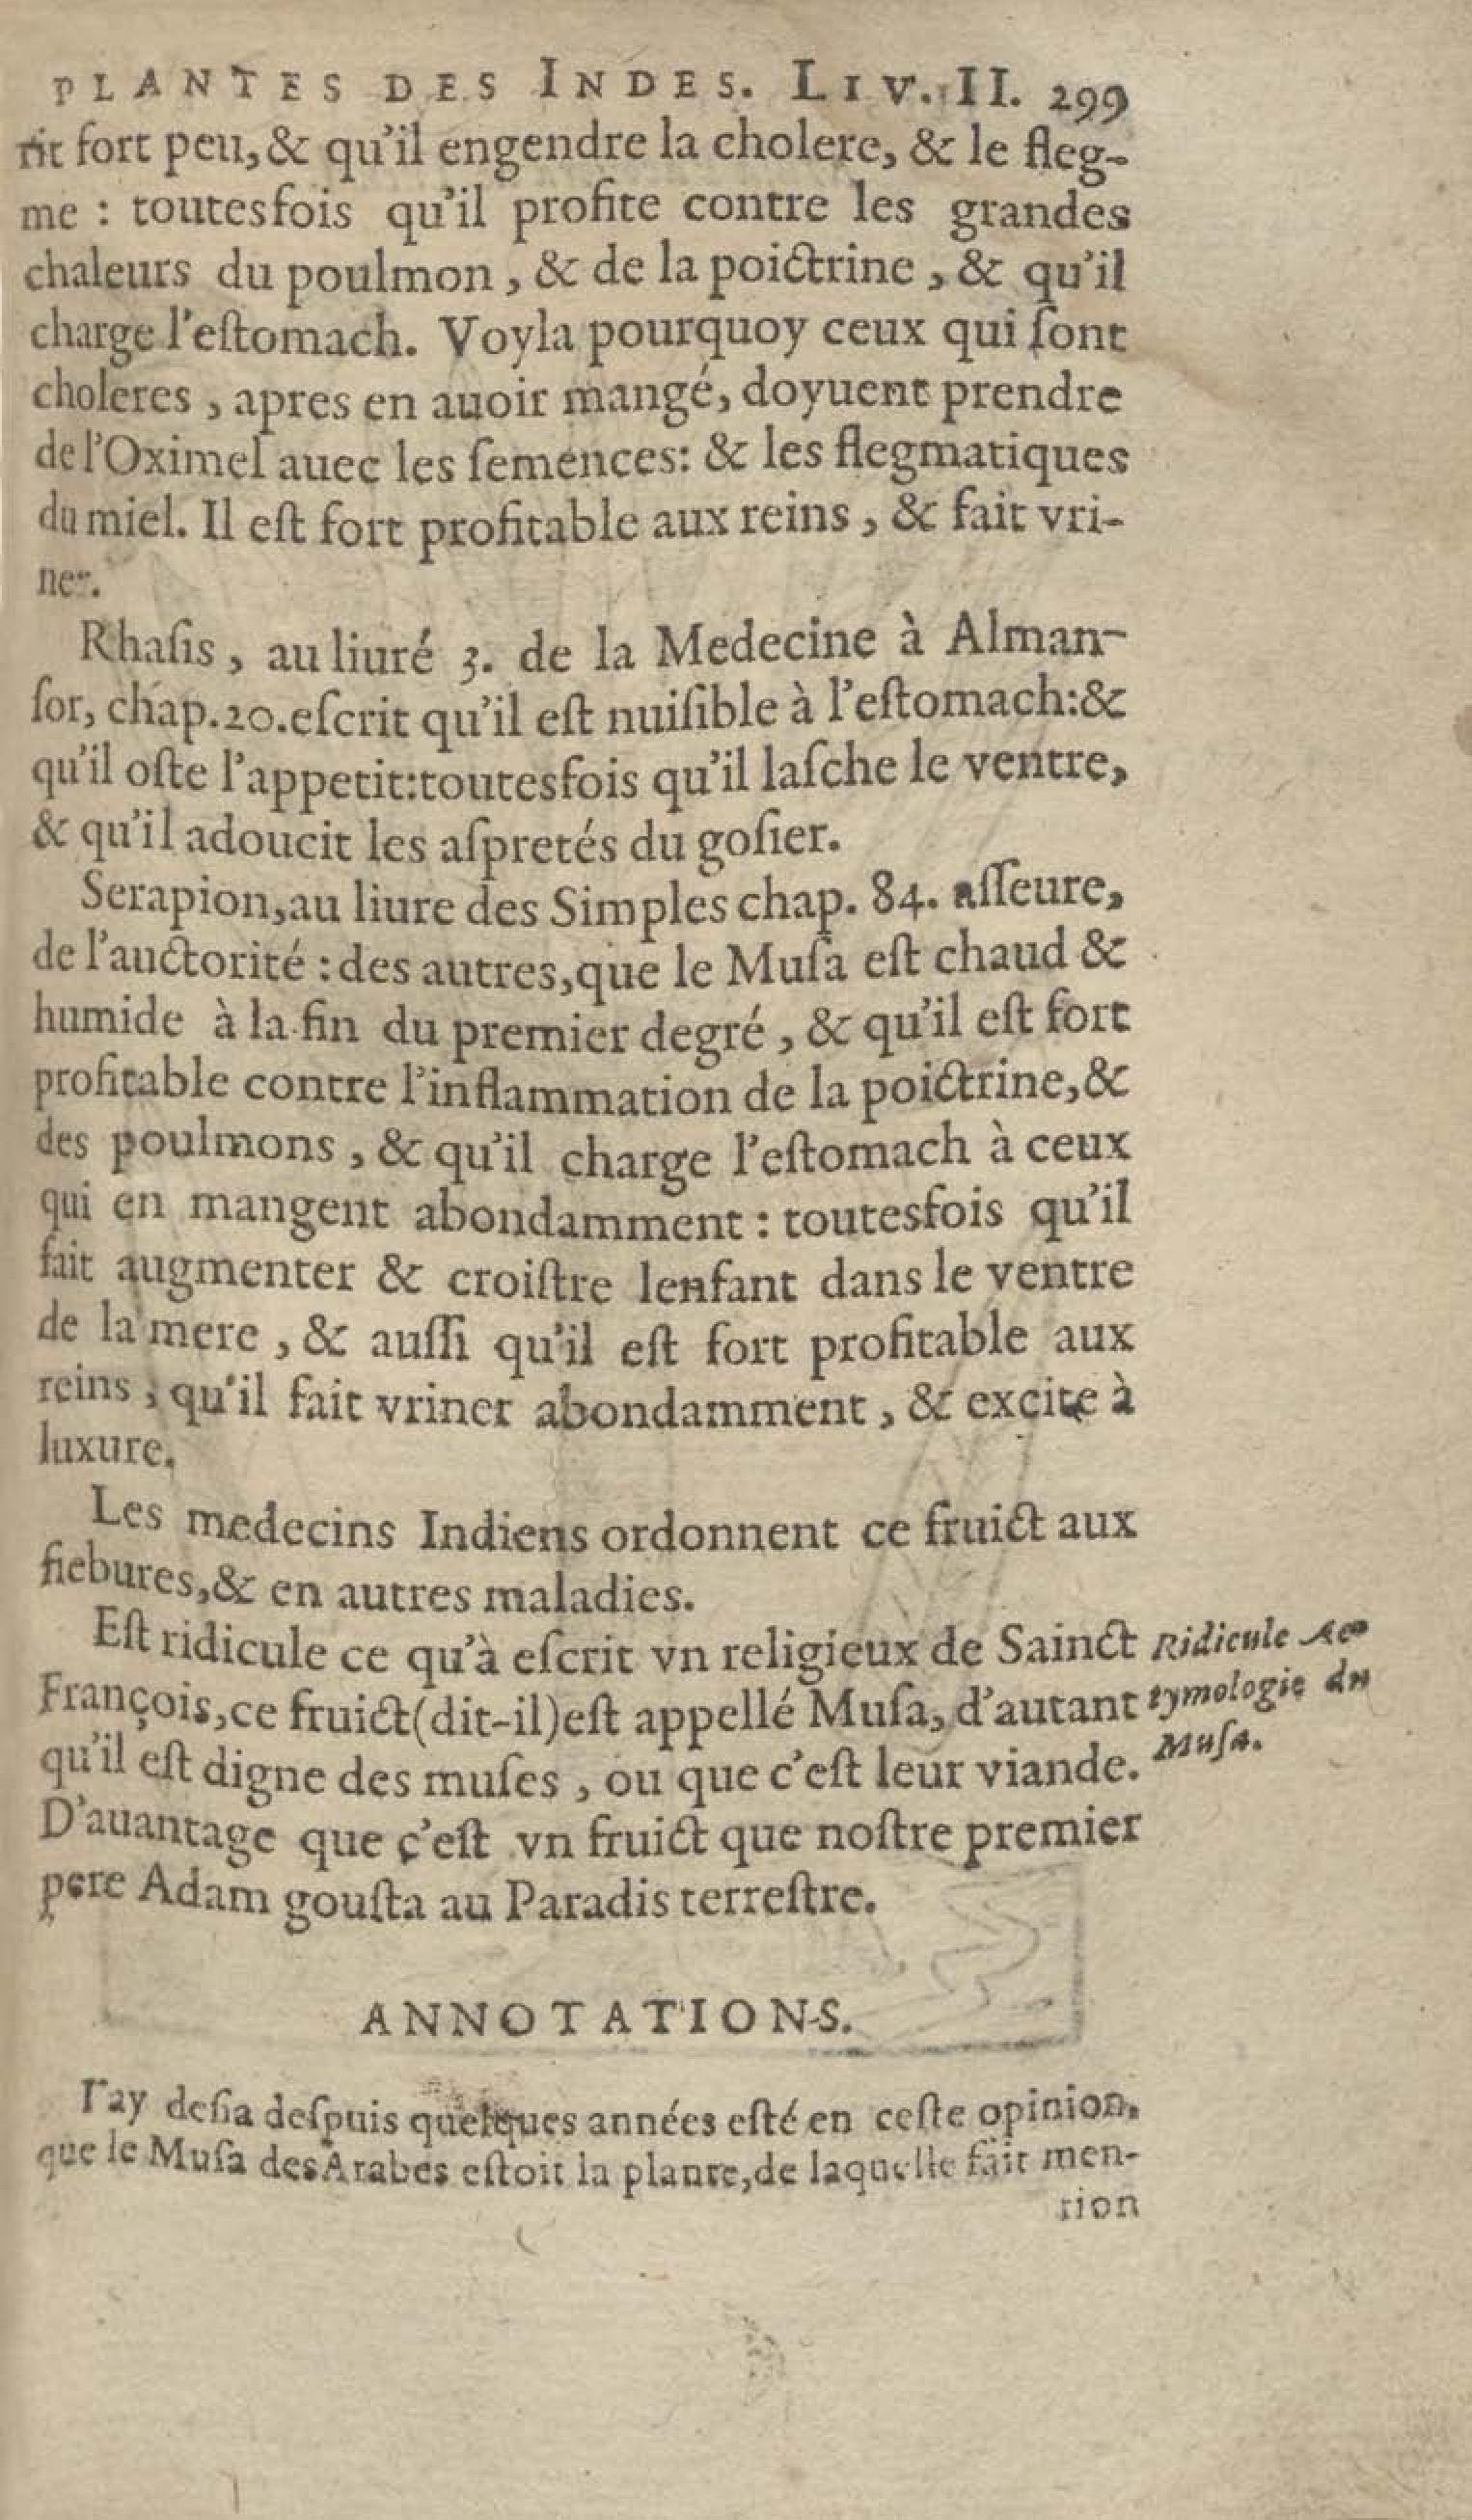 PLANTES DES INDES. LIV. II. 299
rit fort peu, & qu'il engendre la cholere, & le fleg-
me : toutesfois qu'il profite contre les grandes
chaleurs du poulmon , & de la poictrine , & qu'il
charge l'eſtomach. Voyla pourquoy ceux qui ſont
choleres , apres en auoir mangé, doyuent prendre
de l'Oximel auec les ſemences: & les flegmatiques
du miel. Il eſt fort profitable aux reins , & fait vri-
ner.
Rhaſis , au liuré 3. de la Medecine à Alman-
ſor, chap.20.eſcrit qu'il eſt nuiſible à l'eſtomach:&
qu'il oſte l'appetit:toutesfois qu'il laſche le ventre,
& qu'il adoucit les aſpretés du goſier.
Serapion,au liure des Simples chap. 84. aſſeure,
de l'auctorité : des autres,que le Muſa eſt chaud &
humide à la fin du premier degré , & qu'il eſt fort
profitable contre l'inflammation de la poictrine,&
des poulmons , & qu'il charge l'eſtomach à ceux
qui en mangent abondamment : toutesfois qu'il
fait augmenter & croiſtre lenfant dans le ventre
de la mere , & auſſi qu'il eſt fort profitable aux
reins , qu'il fait vriner abondamment , & excite à
luxure.
Les medecins Indiens ordonnent ce fruict aux
fiebures,& en autres maladies.
Eſt ridicule ce qu'à eſcrit vn religieux de Sainct
François,ce fruict(dit-il)eſt appellé Muſa, d'autant
qu'il eſt digne des muſes , ou que c'eſt leur viande.
D'auantage que c'eſt vn fruict que noſtre premier
pere Adam gouſta au Paradis terreſtre.
Ridicule
tymologie du
Muſa.
ANNOTATIONS.
I'ay deſia deſpuis quelques années eſté en ceſte opinion,
que le Muſa des Arabes eſtoit la plante,de laquelle fait men-
tion